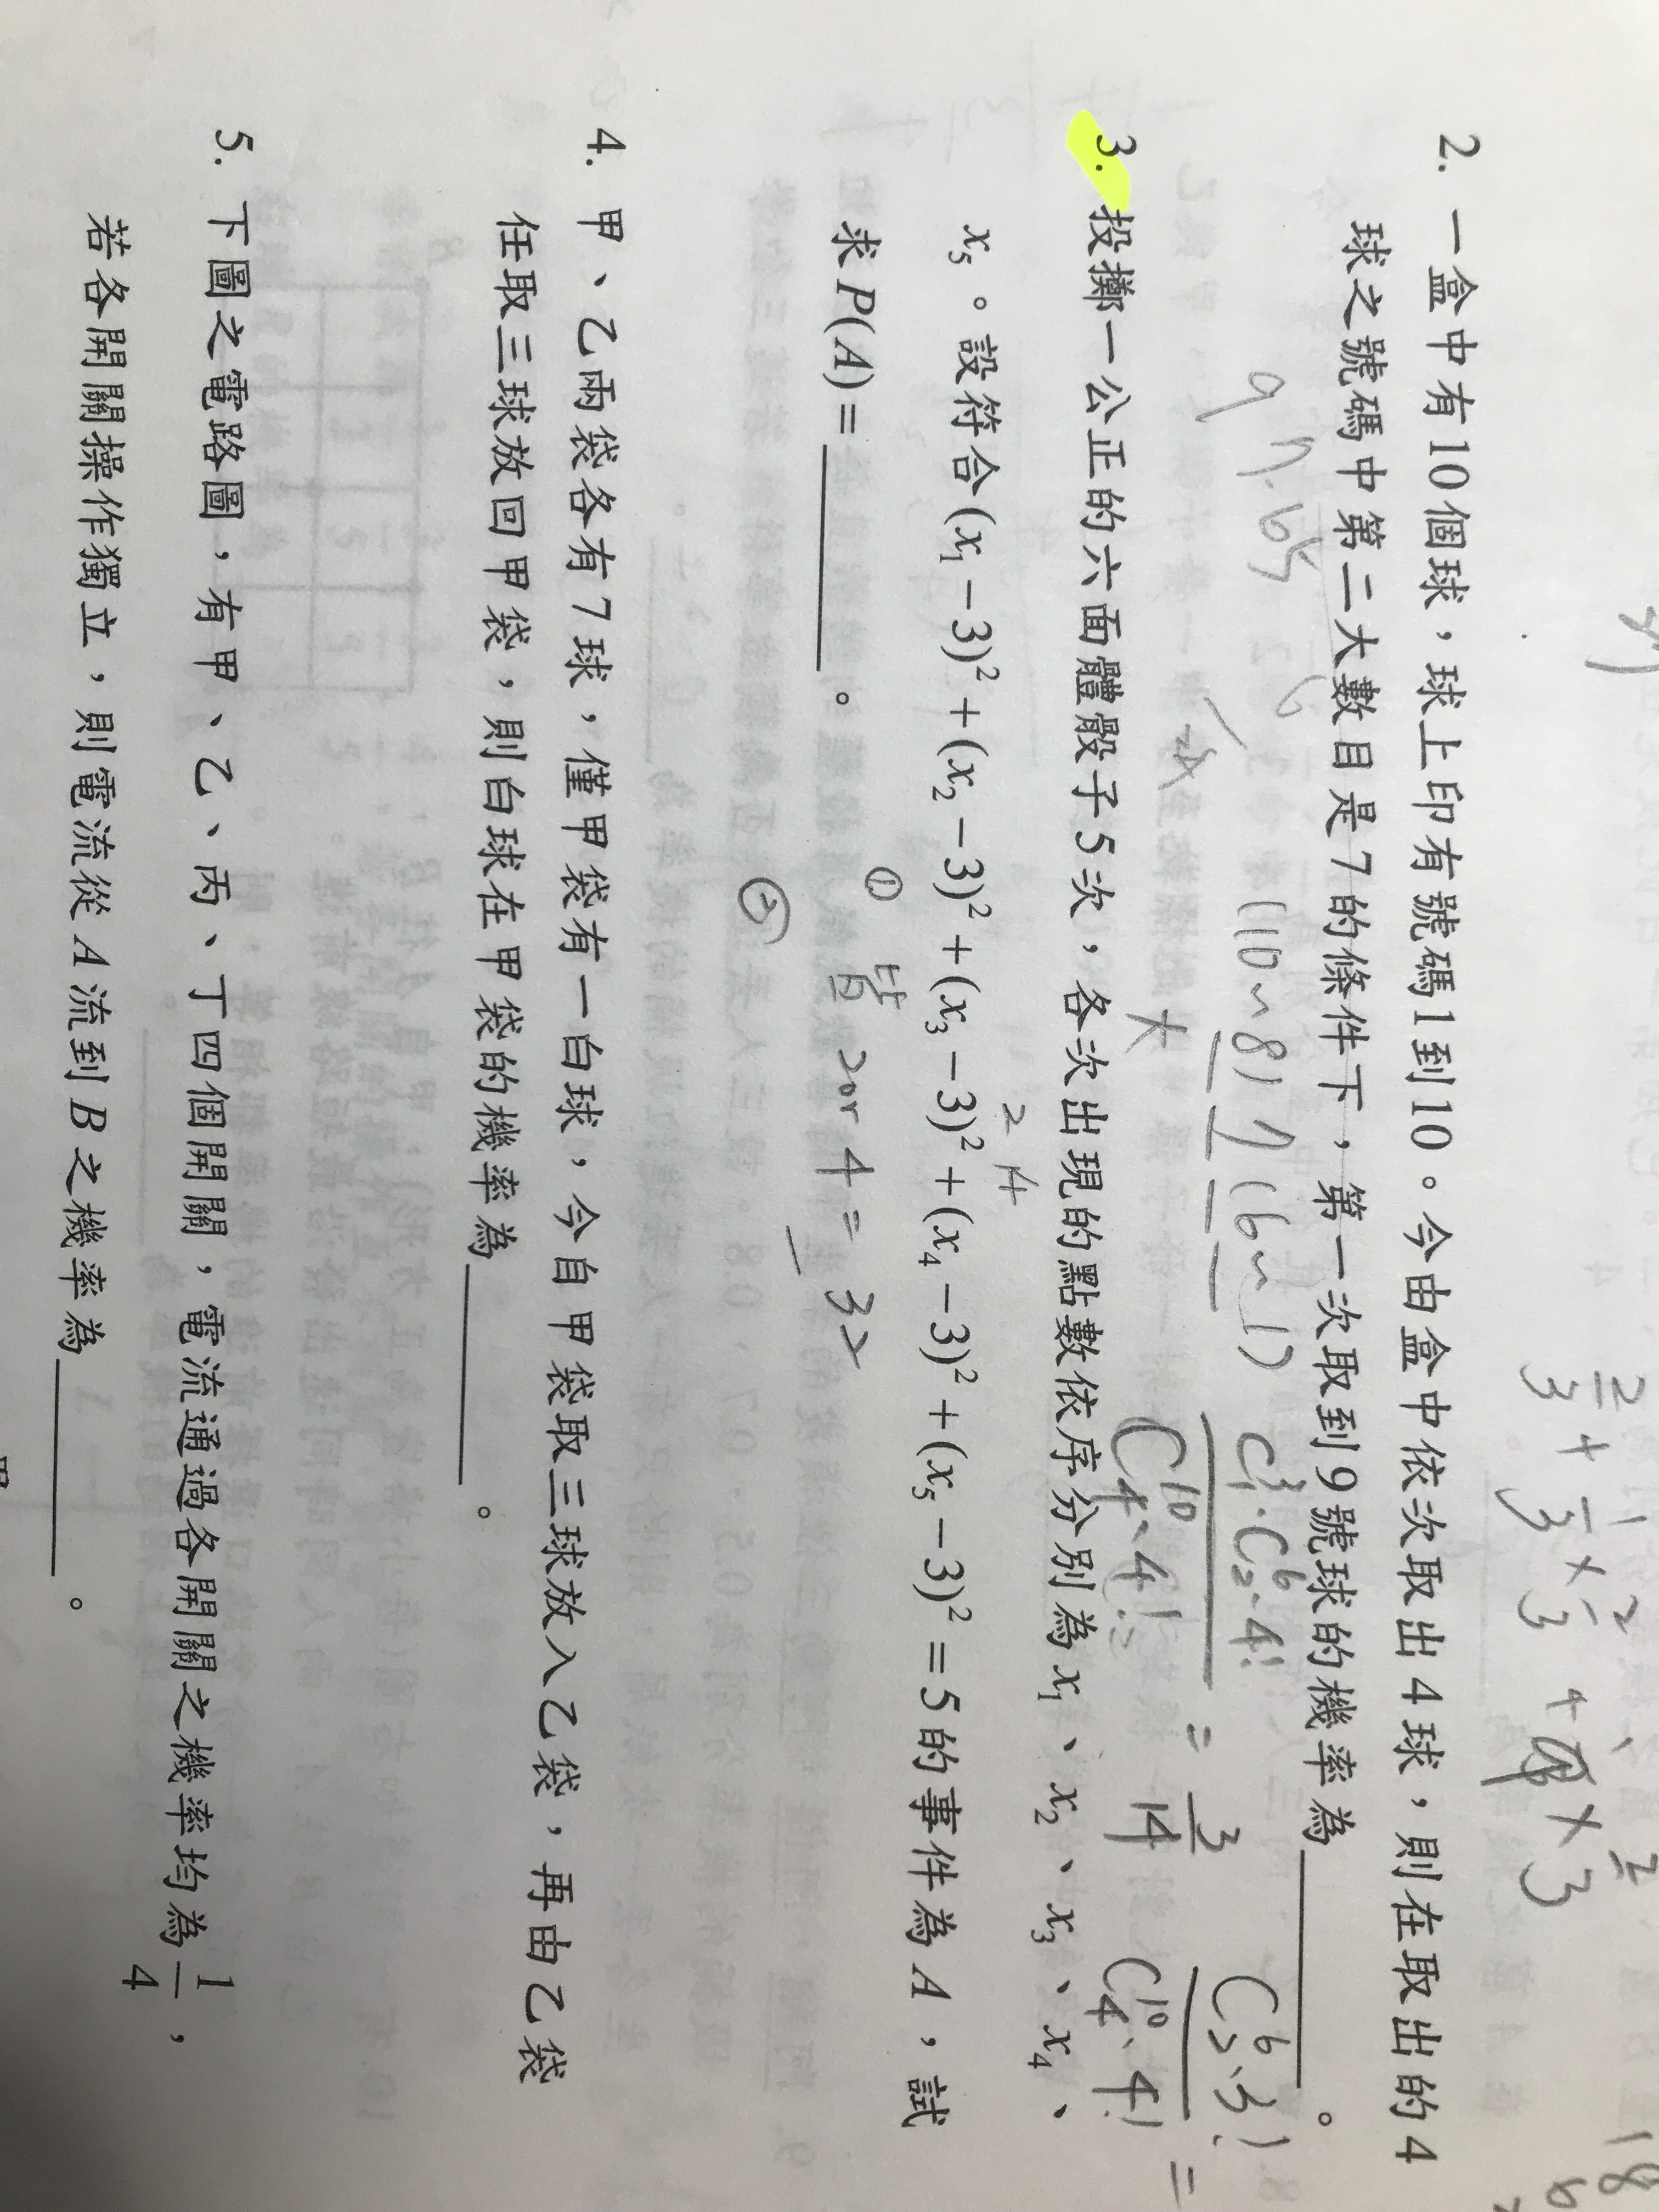 2. 一盒中有10個球，球上印有號碼1到10。今由盒中依次取出4球，則在取出的4
球之號碼中第二大數目是7的條件下，第一次取到9號球的機率為＿＿＿。
(10~8) 7 (6~1)
大
C³₁·C⁶₂·4! / C¹⁰₄·4! = 3/14
C⁶₂·3! / C¹⁰₄·4! =
3. 投擲一公正的六面體骰子5次，各次出現的點數依序分別為x₁、x₂、x₃、x₄、
x₅。設符合(x₁−3)²+(x₂−3)²+(x₃−3)²+(x₄−3)²+(x₅−3)²=5的事件為A，試
求P(A)=＿＿＿。
2 14
① 皆 2or 4 = 32
②
4. 甲、乙兩袋各有7球，僅甲袋有一白球，今自甲袋取三球放入乙袋，再由乙袋
任取三球放回甲袋，則白球在甲袋的機率為＿＿＿。
5. 下圖之電路圖，有甲、乙、丙、丁四個開關，電流通過各開關之機率均為1/4，
若各開關操作獨立，則電流從A流到B之機率為＿＿＿。